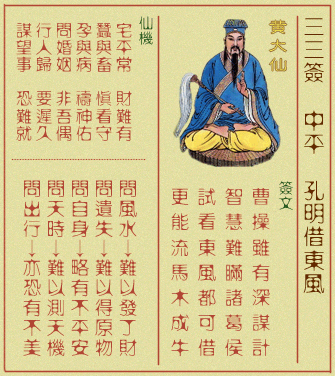 三三簽 中平 孔明借東風
黃大仙
簽文
曹操雖有深謀計
智慧難瞞諸葛侯
試看東風都可借
更能流馬木成牛
仙機
宅平常 財難有
蠶與畜 慎看守
孕與病 禱神佑
問婚姻 非吾偶
行人歸 要遲久
謀望事 恐難就
問風水↓難以發了財
問遺失↓難以得原物
問自身↓略有不平安
問天時↓難以測天機
問出行↓亦恐有不美